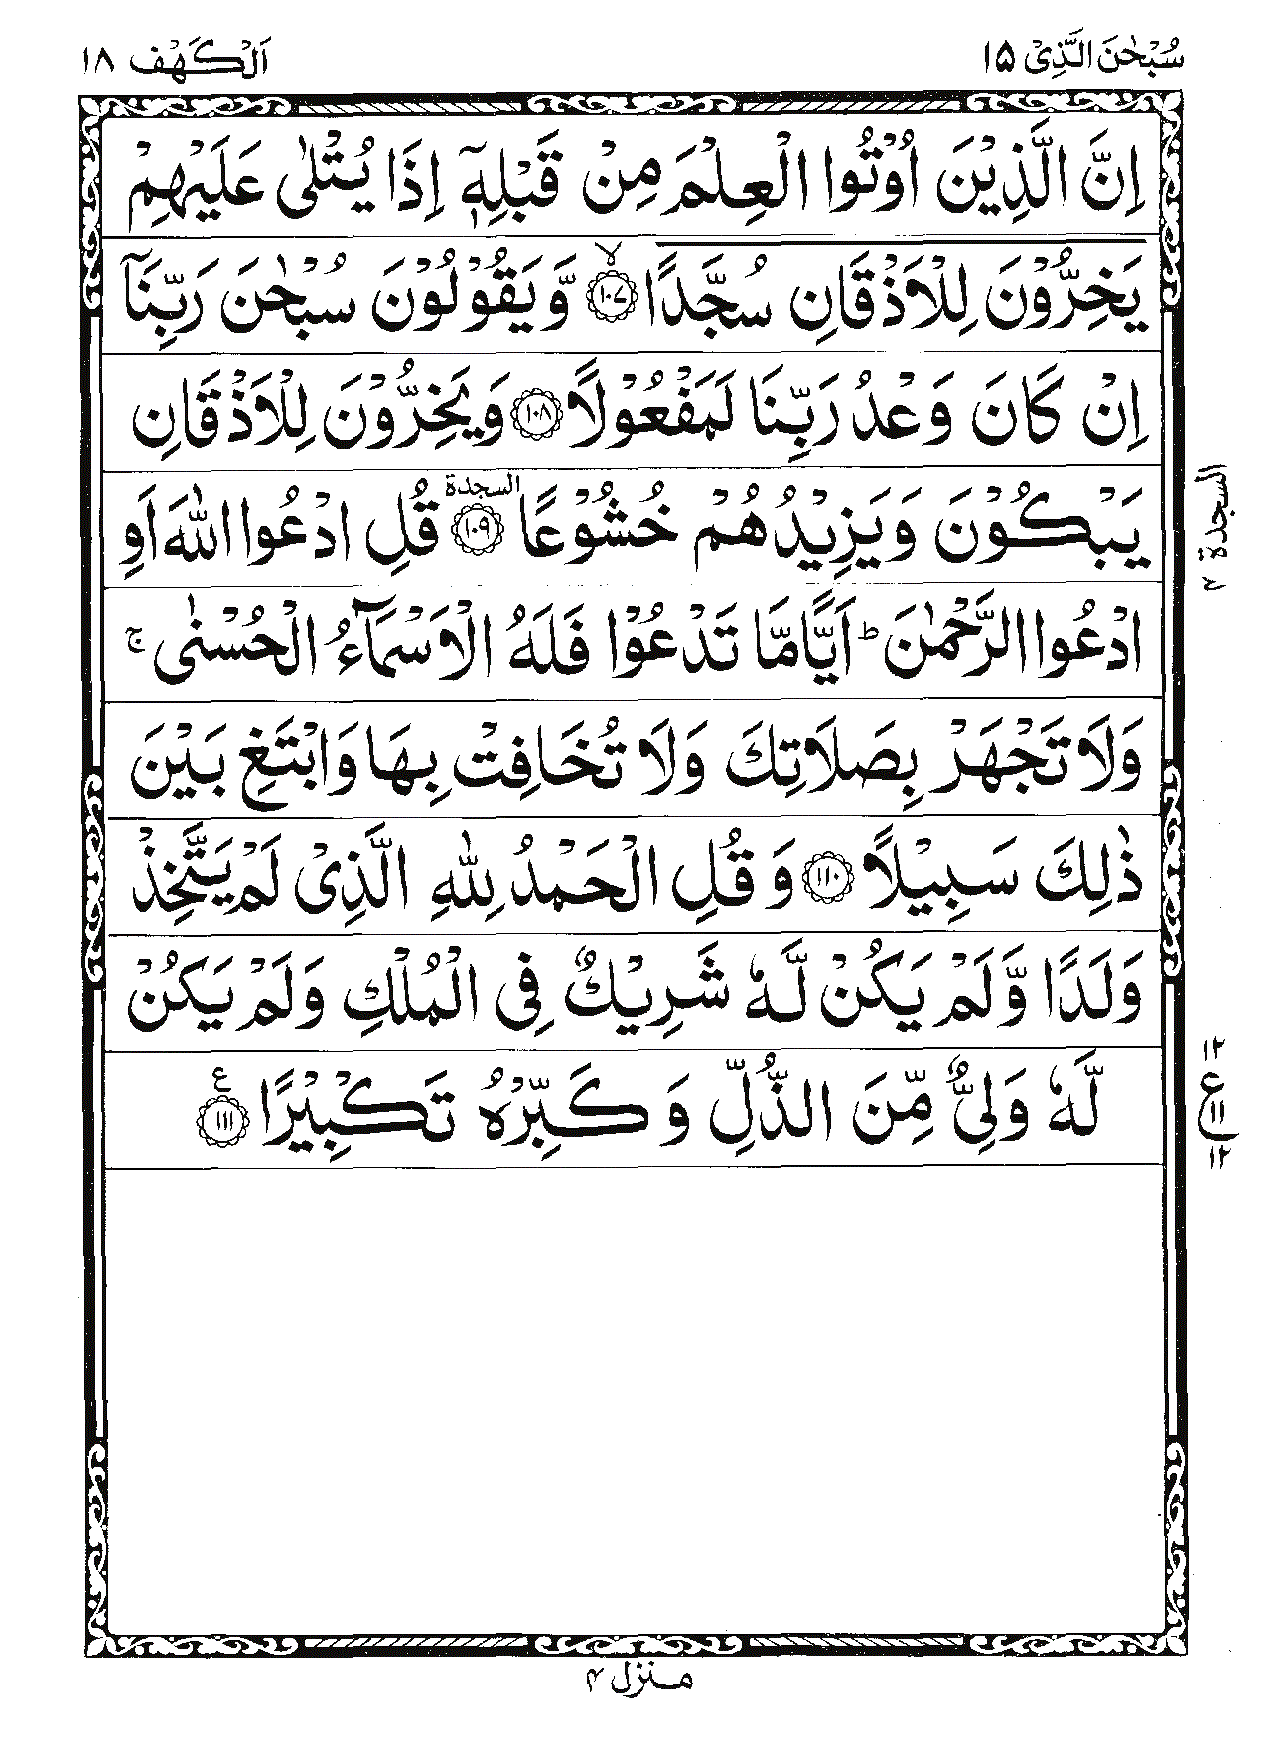 سُبْحٰنَ الَّذِیْۤ ١٥
اَلْكَهْف ١٨
اِنَّ الَّذِیْنَ اُوْتُوا الْعِلْمَ مِنْ قَبْلِهٖۤ اِذَا یُتْلٰی عَلَیْهِمْ
یَخِرُّوْنَ لِلْاَذْقَانِ سُجَّدًا ۙ ﴿١٠٧﴾ وَّیَقُوْلُوْنَ سُبْحٰنَ رَبِّنَاۤ
اِنْ كَانَ وَعْدُ رَبِّنَا لَمَفْعُوْلًا ﴿١٠٨﴾ وَیَخِرُّوْنَ لِلْاَذْقَانِ
یَبْكُوْنَ وَیَزِیْدُهُمْ خُشُوْعًا ﴿١٠٩﴾ السجدة قُلِ ادْعُوا اللّٰهَ اَوِ
السجدة ۴
ادْعُوا الرَّحْمٰنَ ؕ اَیًّامَّا تَدْعُوْا فَلَهُ الْاَسْمَآءُ الْحُسْنٰی ۚ
وَلَا تَجْهَرْ بِصَلَاتِكَ وَلَا تُخَافِتْ بِهَا وَابْتَغِ بَیْنَ
ذٰلِكَ سَبِیْلًا ﴿١١٠﴾ وَ قُلِ الْحَمْدُ لِلّٰهِ الَّذِیْ لَمْ یَتَّخِذْ
وَلَدًا وَّلَمْ یَكُنْ لَّهٗ شَرِیْكٌ فِی الْمُلْكِ وَلَمْ یَكُنْ
لَّهٗ وَلِیٌّ مِّنَ الذُّلِّ وَ كَبِّرْهُ تَكْبِیْرًا ﴿١١١﴾ ع
١٢
ع
١١
١٢
منزل ۴